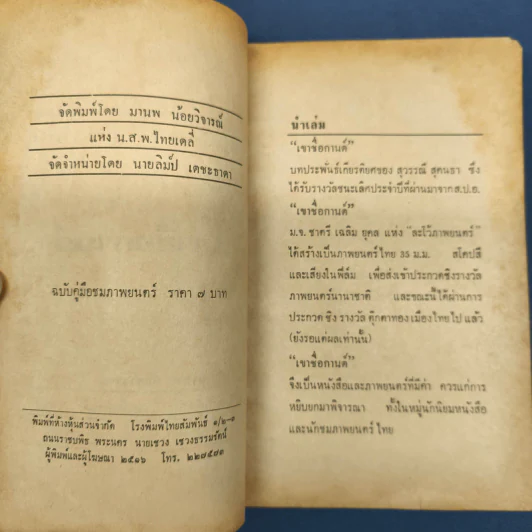 จัดพิมพ์โดย มานพ น้อยวิจารณ์
แห่ง น.ส.พ.ไทยเดลี่
จัดจำหน่ายโดย นายลิมป์ เตชะธาดา
ฉบับคู่มือชมภาพยนตร์ ราคา ๗ บาท
พิมพ์ที่ห้างหุ้นส่วนจำกัด โรงพิมพ์ไทยสัมพันธ์
ถนนราชบพิธ พระนคร นายเชวง เชวงธรรมรัตน์
ผู้พิมพ์และผู้โฆษณา ๒๕๑๖ โทร.
นำเล่ม
"เขาชื่อกานต์"
บทประพันธ์เกียรติยศของ สุวรรณี สุคนธา ซึ่ง
ได้รับรางวัลชนะเลิศประจำปีที่ผ่านมาจาก ส.ป.อ.
"เขาชื่อกานต์"
ม.จ. ชาตรี เฉลิม ยุคล แห่ง "ละโว้ภาพยนตร์"
ได้สร้างเป็นภาพยนตร์ไทย 35 ม.ม. สโคปสี
และเสียงในฟิล์ม เพื่อส่งเข้าประกวดชิงรางวัล
ภาพยนตร์นานาชาติ และขณะนี้ได้ผ่านการ
ประกวด ชิง รางวัล ตุ๊กตาทอง เมืองไทย ไป แล้ว
(ยังรอแต่ผลเท่านั้น)
"เขาชื่อกานต์"
จึงเป็นหนังสือและภาพยนตร์ที่มีค่า ควรแก่การ
หยิบยกมาพิจารณา ทั้งในหมู่นักนิยมหนังสือ
และนักชมภาพยนตร์ ไทย